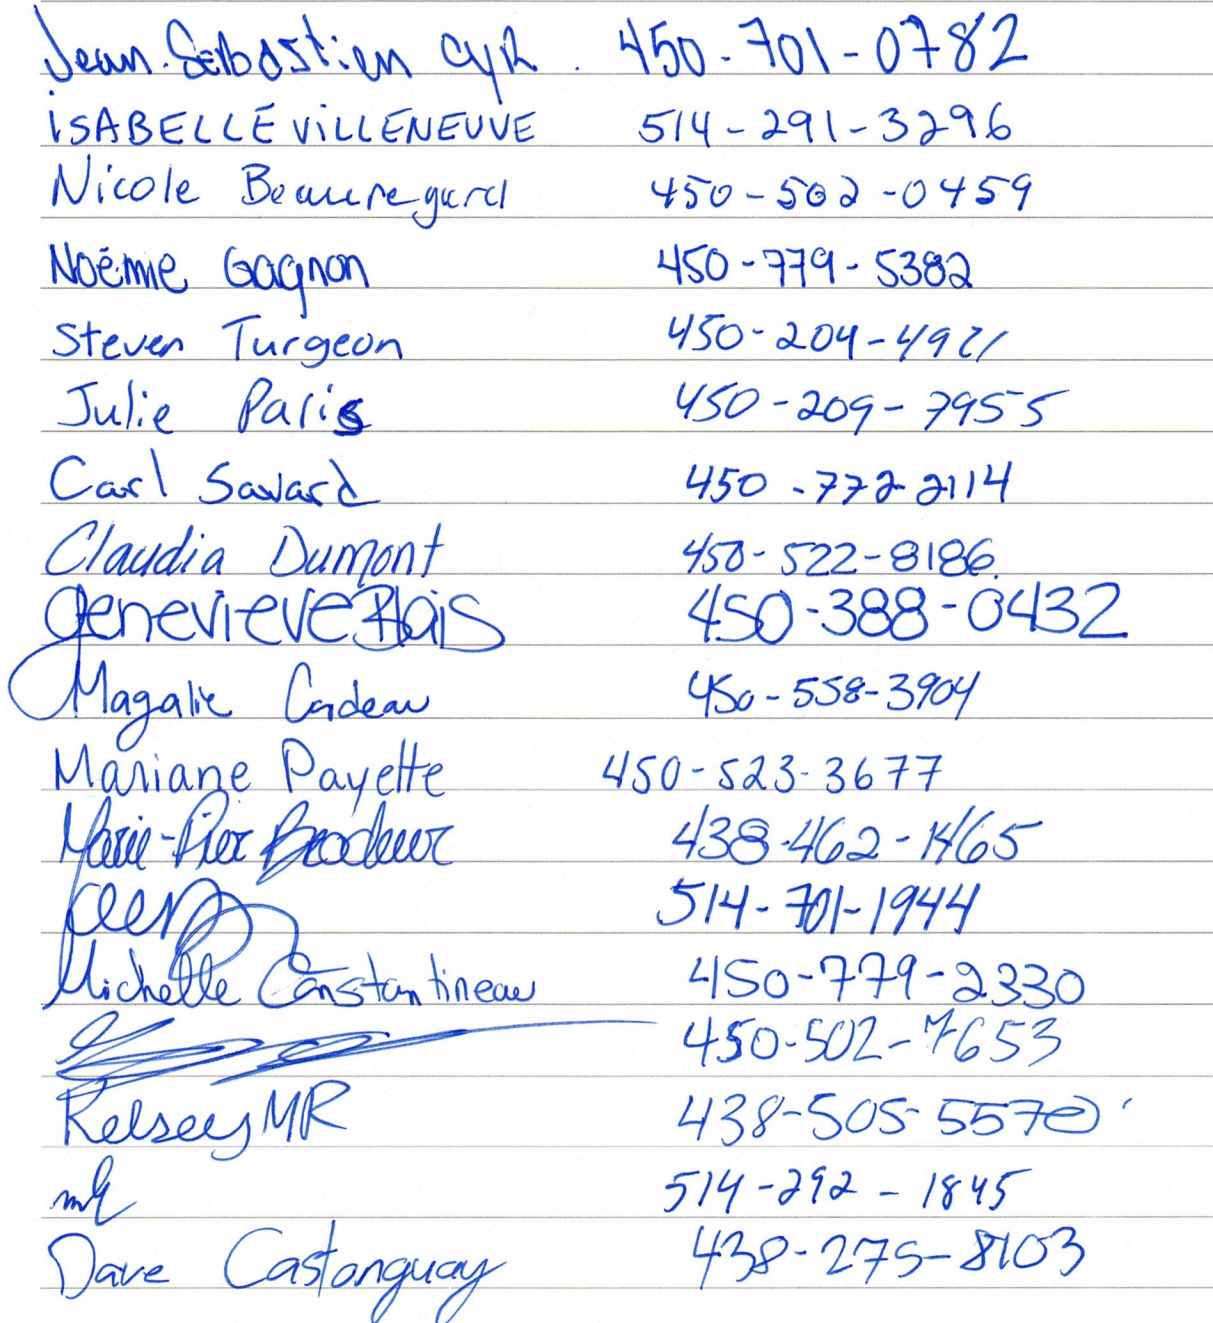 Jean-Sébastien Cyr 450-701-0782
ISABELLE VILLENEUVE 514-291-3296
Nicole Beauregard 450-502-0459
Noémie Gagnon 450-779-5382
Steven Turgeon 450-204-4921
Julie Paris 450-209-7955
Carl Savard 450-772-2114
Claudia Dumont 450-522-8186
Genevieve Blais 450-388-0432
Magalie Cadeau 450-558-3904
Mariane Payette 450-523-3677
Marie-Pier Brodeur 438-462-1465
514-701-1944
Michelle Constantineau 450-779-2330
450-502-7653
Kelsey MR 438-505-5570
514-292-1845
Dave Castonguay 438-275-8103